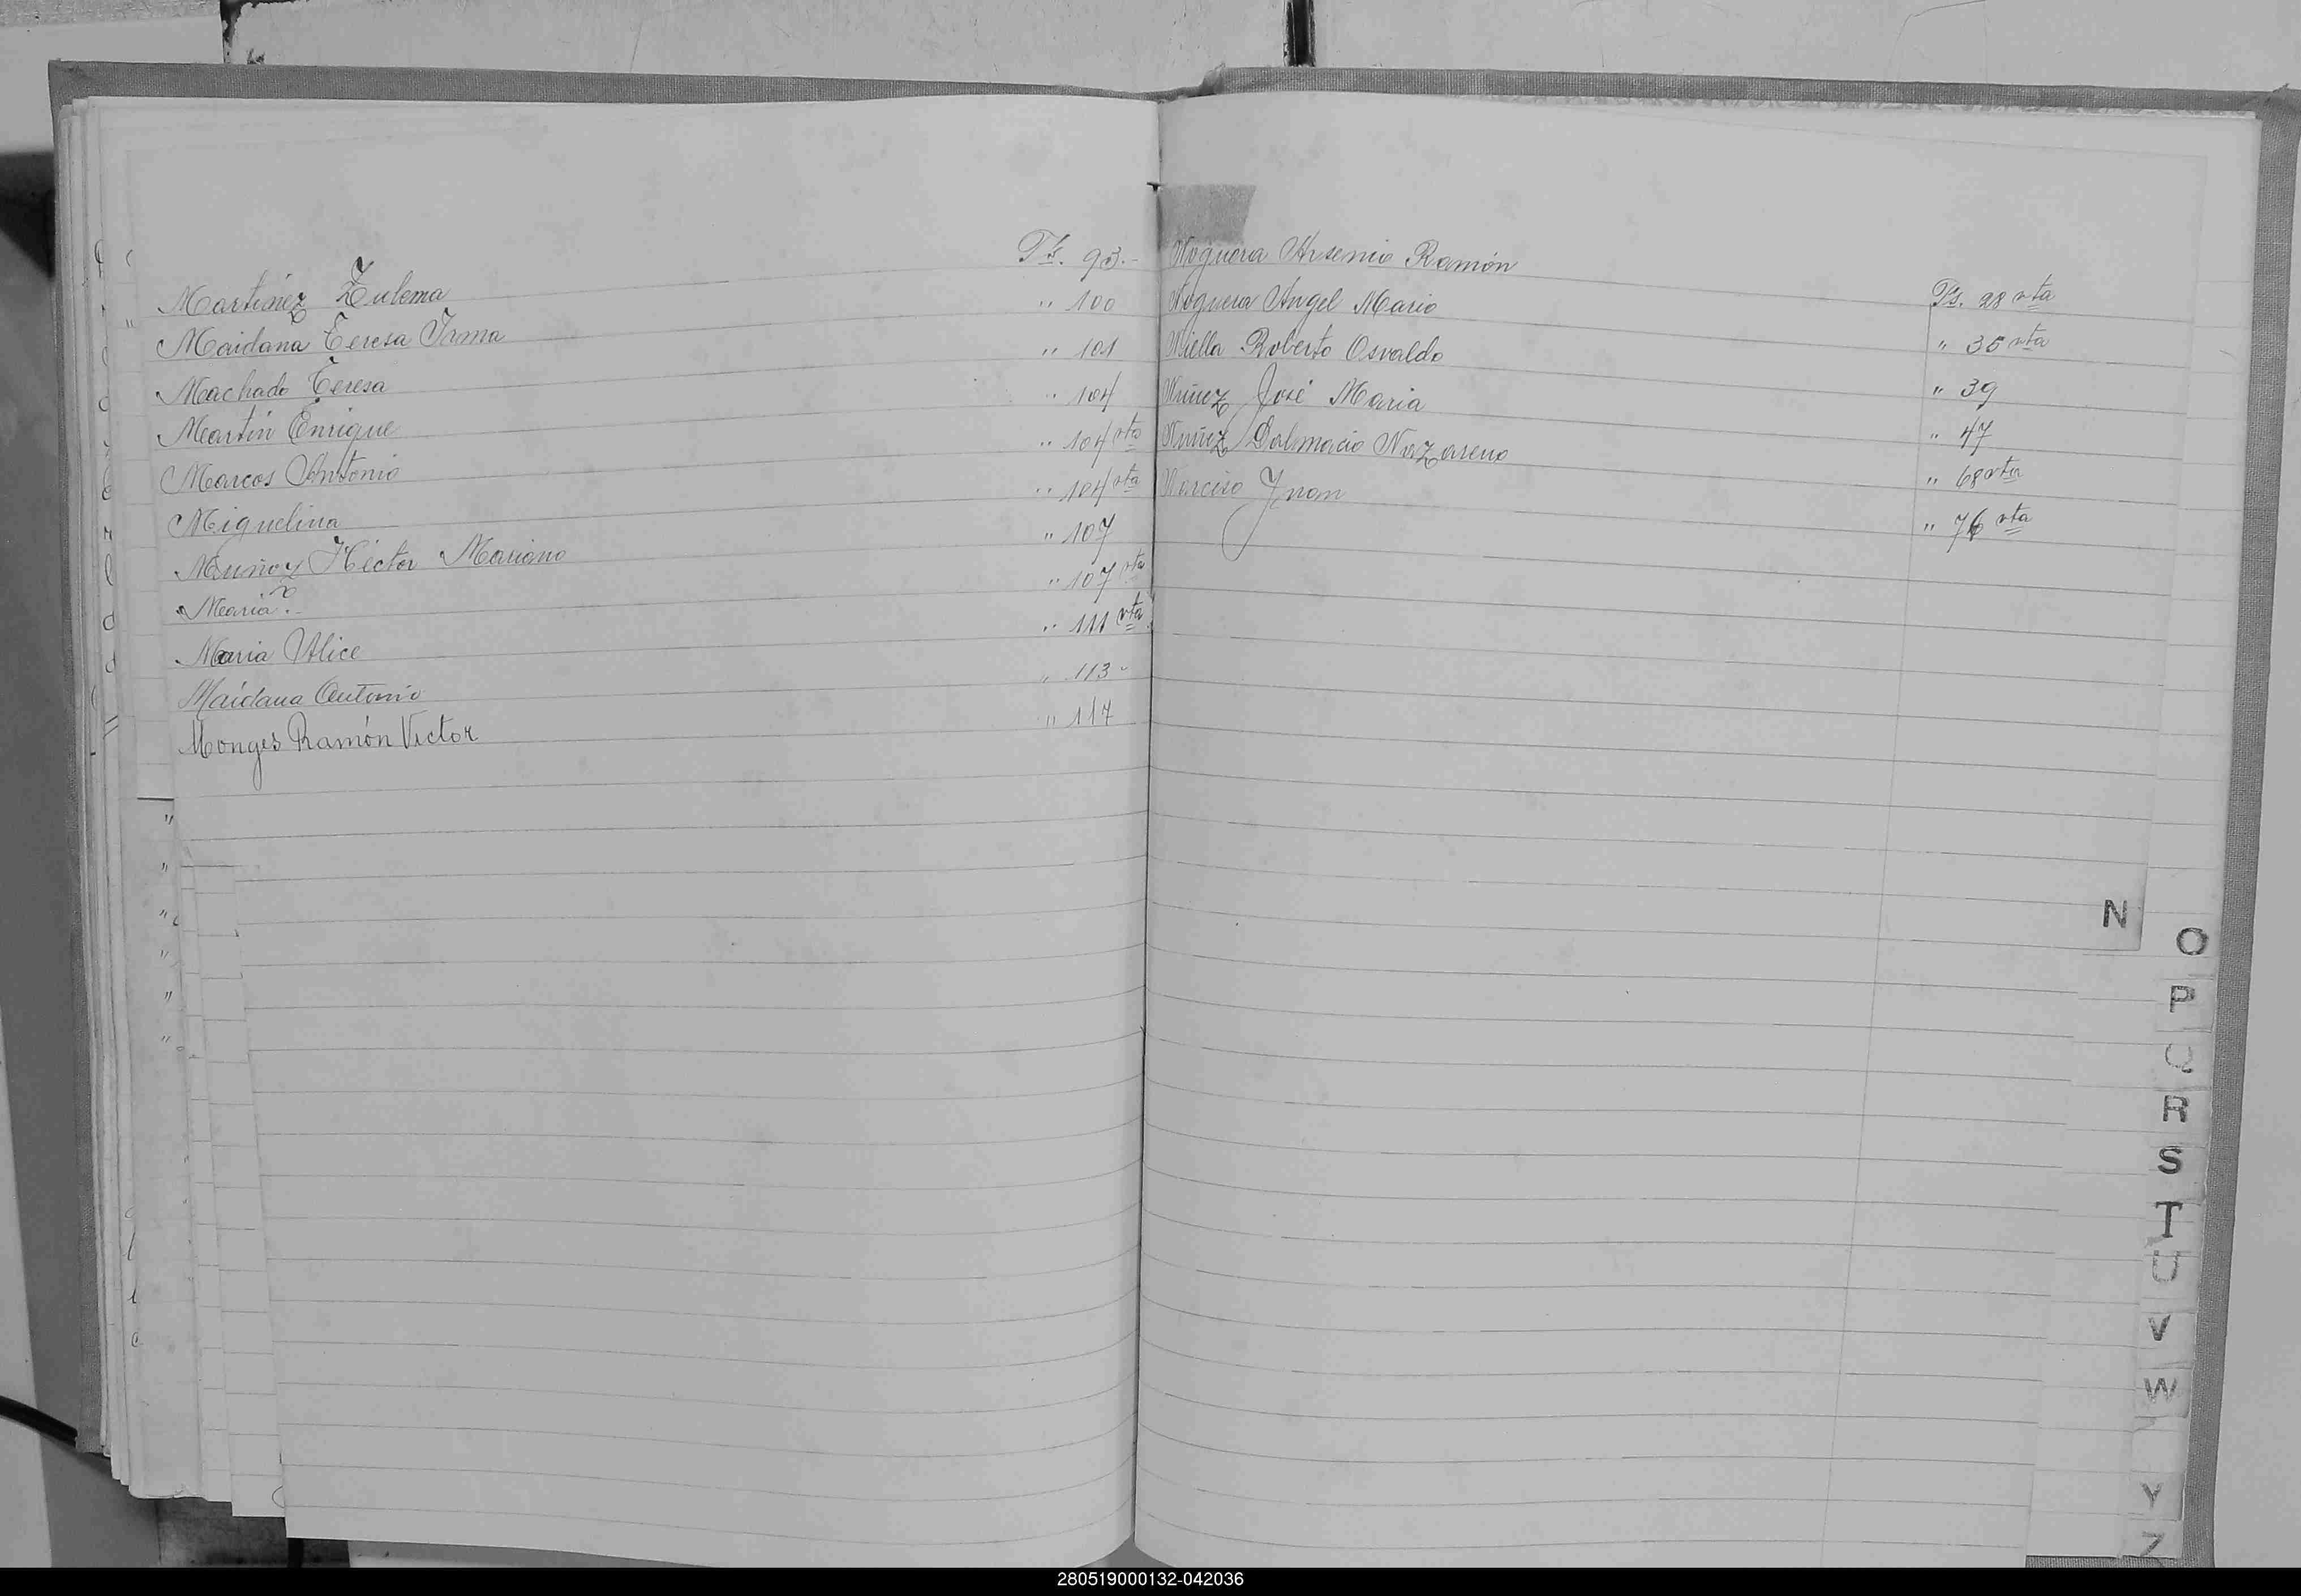 Martinez Zulema Fs. 93.-
Maidana Teresa Irma " 100
Machado Teresa " 101
Martin Enrique " 104
Marcos Antonio " 104 vta
Miguelina " 104 vta
Muñoz Héctor Mariano " 107
Maria ?- " 107 vta
Maria Alice " 111 vta.
Maidana Antonio " 113-
Monges Ramón Victor " 117
Noguera Arsenio Ramón Fs. 28 vta
Noguera Angel Mario " 35 vta
Niella Roberto Osvaldo " 39
Nuñez José Maria " 47
Nuñez Dalmacio Nazareno " 68 vta
Narciso Juan " 76 vta
N
O
P
Q
R
S
T
U
V
W
Y
Z
280519000132-042036